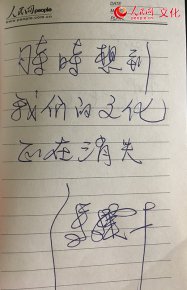 人民网 people
www.people.com.cn
DATE
人民网 文化
時時想到
我们的文化
正在消失